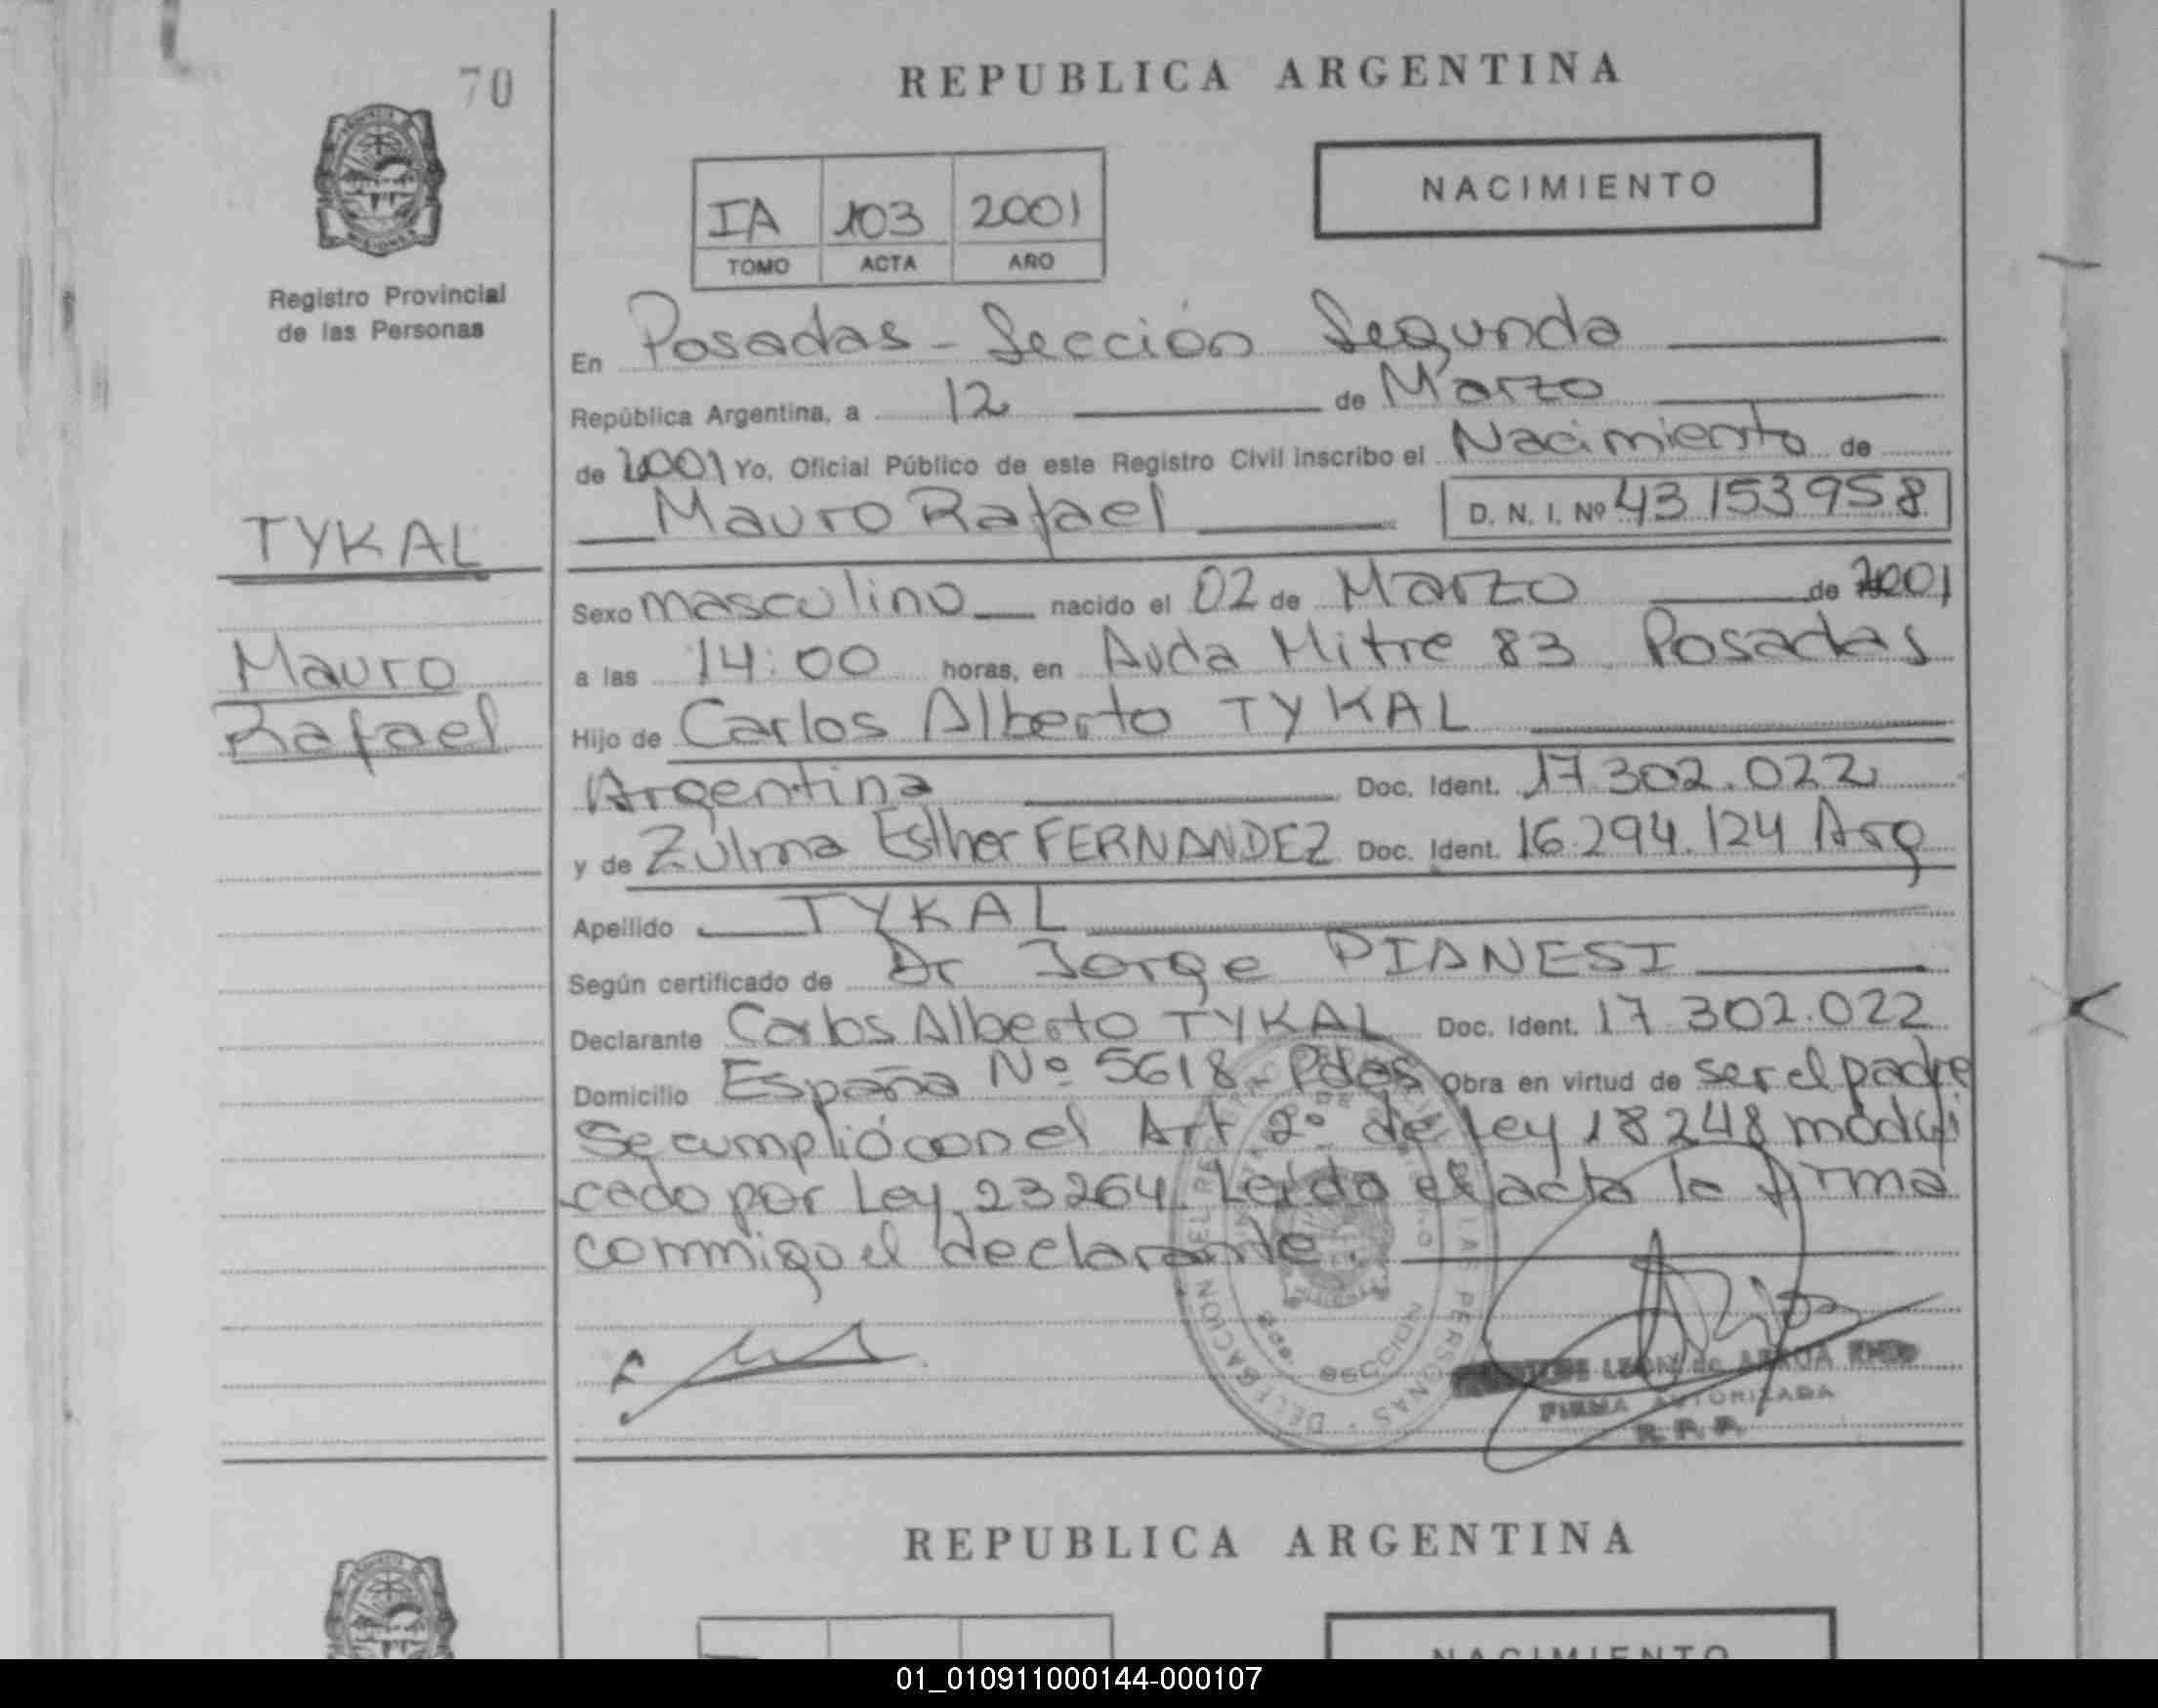 70
REPUBLICA ARGENTINA
NACIMIENTO
IA 103 2001
TOMO ACTA AÑO
Registro Provincial
de las Personas
En Posadas - Sección Segunda
República Argentina, a 12 de Marzo
de 2001 Yo, Oficial Público de este Registro Civil inscribo el Nacimiento de
Mauro Rafael D. N. I. Nº 43153958
TYKAL
Mauro
Rafael
Sexo masculino nacido el 02 de Marzo de 2001
a las 14:00 horas, en Avda Mitre 83 Posadas
Hijo de Carlos Alberto TYKAL
Argentina Doc. Ident. 17.302.022
y de Zulma Esther FERNANDEZ Doc. Ident. 16.294.124 Arg
Apellido TYKAL
Según certificado de Dr Jorge PIANESI
Declarante Carlos Alberto TYKAL Doc. Ident. 17 302.022
Domicilio España Nº 5618 Pdas Obra en virtud de ser el padre
Se cumplió con el Art 2º de Ley 18248 modifi
cado por Ley 23264. Leída el acta la firma
conmigo el declarante.
DELEGACION DEL REGISTRO DE LAS PERSONAS
2da. SECCION
FIRMA AUTORIZADA
R. P. P.
REPUBLICA ARGENTINA
NACIMIENTO
01_010911000144-000107